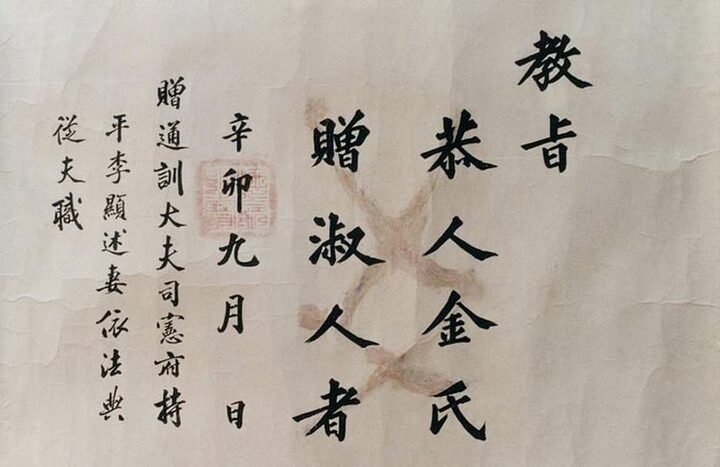 教旨
恭人金氏
贈淑人者
辛卯九月 日
贈通訓大夫司憲府持
平李顯述妻依法典
從夫職